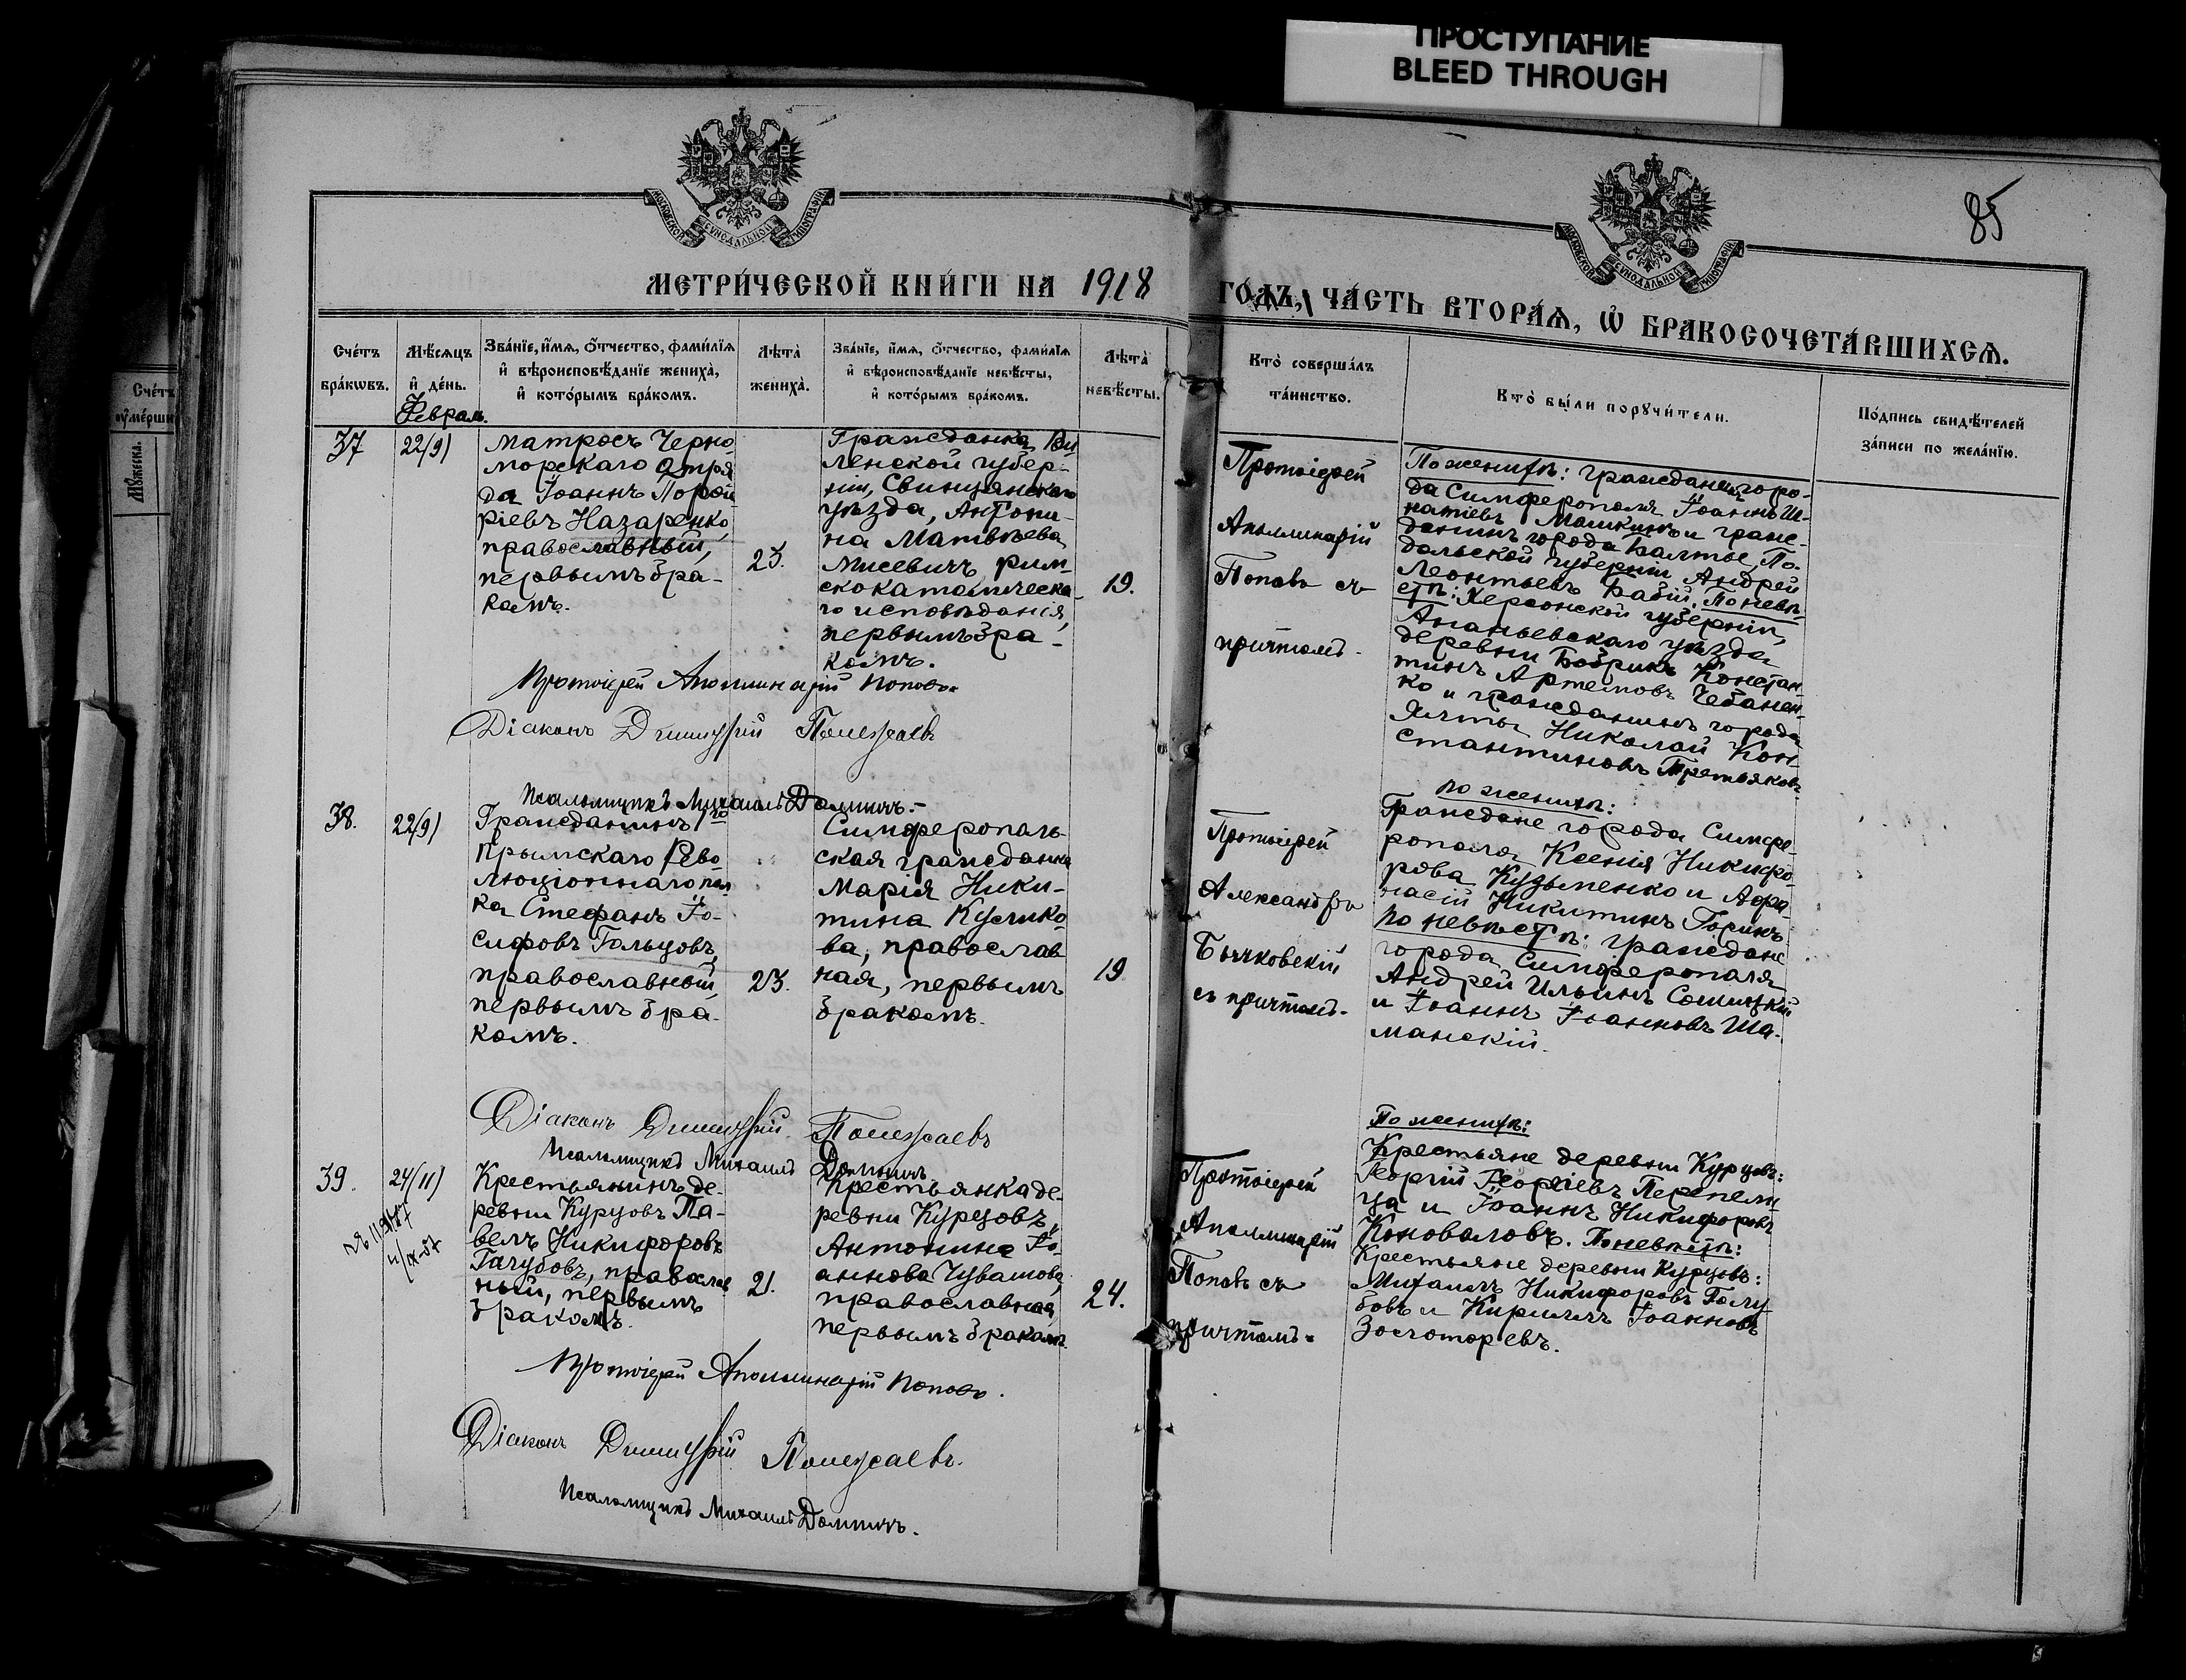 ПРОСТУПАНИЕ
BLEED THROUGH
85
МОСКОВСКОЙ СѴНОДАЛЬНОЙ ТИПОГРАФІИ
МОСКОВСКОЙ СѴНОДАЛЬНОЙ ТИПОГРАФІИ
МЕТРИ́ЧЕСКОЙ КНИ́ГИ НА 1918
ГО́ДЪ, ЧА́СТЬ ВТОРА́Ѧ, Ѽ БРАКОСОЧЕТА́ВШИХСѦ.
Сче́тъ
оу҆ме́рши
Мѹжеска.
Сче́тъ
бра́кѡвъ.
Мѣ́сѧцъ
и҆ де́нь.
Февраль.
Зва́нїе, и҆́мѧ, ѻ҆́тчество, фами́лїѧ
и҆ вѣроисповѣ́данїе жениха̀,
и҆ кото́рымъ бра́комъ.
Лѣ́та̀
жениха̀.
Зва́нїе, и҆́мѧ, ѻ҆́тчество, фами́лїѧ
и҆ вѣроисповѣ́данїе невѣ́сты,
и҆ кото́рымъ бра́комъ.
Лѣ́та̀
невѣ́сты.
Кто̀ соверша́лъ
та́инство.
Кто̀ бы́ли порꙋчи́тели.
По́дпись свидѣ́телей
за́писи по жела́нїю.
37
22(9)
Матросъ Черно
морскаго Отря
да Іоаннъ Порфи
ріевъ Назаренко,
православный,
первымъ бра-
комъ.
23.
Гражданка Ви
ленской губер-
ніи, Свинцянскаго
уѣзда, Антони-
на Матвѣева
Мисевичъ рим-
скокатолическа-
го исповѣданія,
первымъ бра-
комъ.
19.
Протоіерей
Аполлинарій
Поповъ съ
причтомъ.
По женихѣ: гражданинъ горо-
да Симферополя Іоаннъ Иг-
натіевъ Машкинъ и граж-
данинъ города Балты, По-
дольской губерніи Андрей
Леонтьевъ Бабій. По невѣ-
стѣ: Херсонской губерніи,
Ананьевскаго уѣзда
деревни Бобрикъ Констан-
тинъ Артемовъ Чебанен-
ко и гражданинъ города
Ялты Николай Кон-
стантиновъ Третьяковъ
Протоіерей Аполлинарій Поповъ
Діаконъ Димитрій Полежаевъ
Псаломщикъ Михаилъ
38.
22(9)
Гражданинъ 1го
Крымскаго Рево
люціоннаго пол
ка Стефанъ Іо-
сифовъ Гольцовъ,
православный,
первымъ бра-
комъ.
23.
Симферополь-
ская гражданка
Марія Ники-
тина Кулико
ва, православ
ная, первымъ
бракомъ.
19
Протоіерей
Александръ
Бычковскій
съ причтомъ.
По женихѣ:
Граждане города Симфе-
рополя Ксенія Никифо-
рова Кузьменко и Афа-
насій Никитинъ Горинъ
По невѣстѣ: граждане
города Симферополя
Андрей Ильинъ
и Іоаннъ Іоанновъ Ша-
манскій.
Діаконъ Димитрій Полежаевъ
Псаломщикъ Михаилъ
39.
24(11)
Крестьянинъ де-
ревни Курцовъ Па-
велъ Никифоровъ
православ
ный, первымъ
бракомъ.
21.
Крестьянка де-
ревни Курцовъ,
Антонина Іо-
аннова Чувашова,
православная,
первымъ бракомъ.
24.
Протоіерей
Аполлинарій
Поповъ съ
причтомъ.
По женихѣ:
Крестьяне деревни Курцовъ:
Георгій Георгіевъ Перепели
ца и Іоаннъ Никифоровъ
Коноваловъ. По невѣстѣ:
Крестьяне деревни Курцовъ:
Михаилъ Никифоровъ Голу-
бовъ и Кириллъ Іоанновъ
Золоторевъ.
Протоіерей Аполлинарій Поповъ.
Діаконъ Димитрій Полежаевъ.
Псаломщикъ Михаилъ